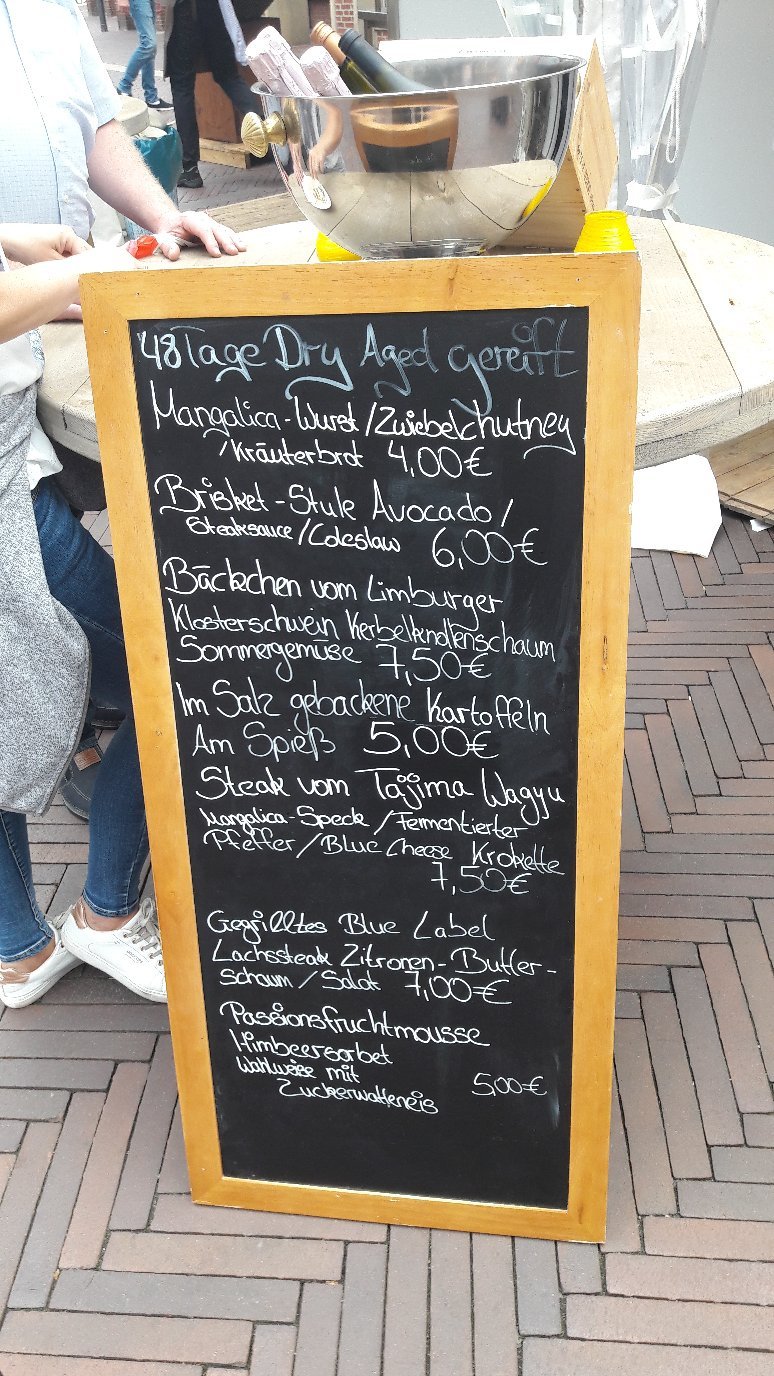 48 Tage Dry Aged gereift
Mangalica-Wurst/Zwiebelchutney
/Kräuterbrot 4,00€
Brisket-Stule Avocado/
Steaksauce/Coleslaw 6,00€
Bäckchen vom Limburger
Klosterschwein Kerbelknollenschaum
Sommergemüse 7,50€
Im Salz gebackene Kartoffeln
Am Spieß 5,00€
Steak vom Tajima Wagyu
Mangalica-Speck/Fermentierter
Pfeffer/Blue Cheese Krokette
7,50€
Gegrilltes Blue Label
Lachssteak Zitronen-Butter-
schaum/Salat 7,00€
Passionsfruchtmousse
Himbeersorbet
Wahlweise mit
Zuckerwatteneis 5,00€